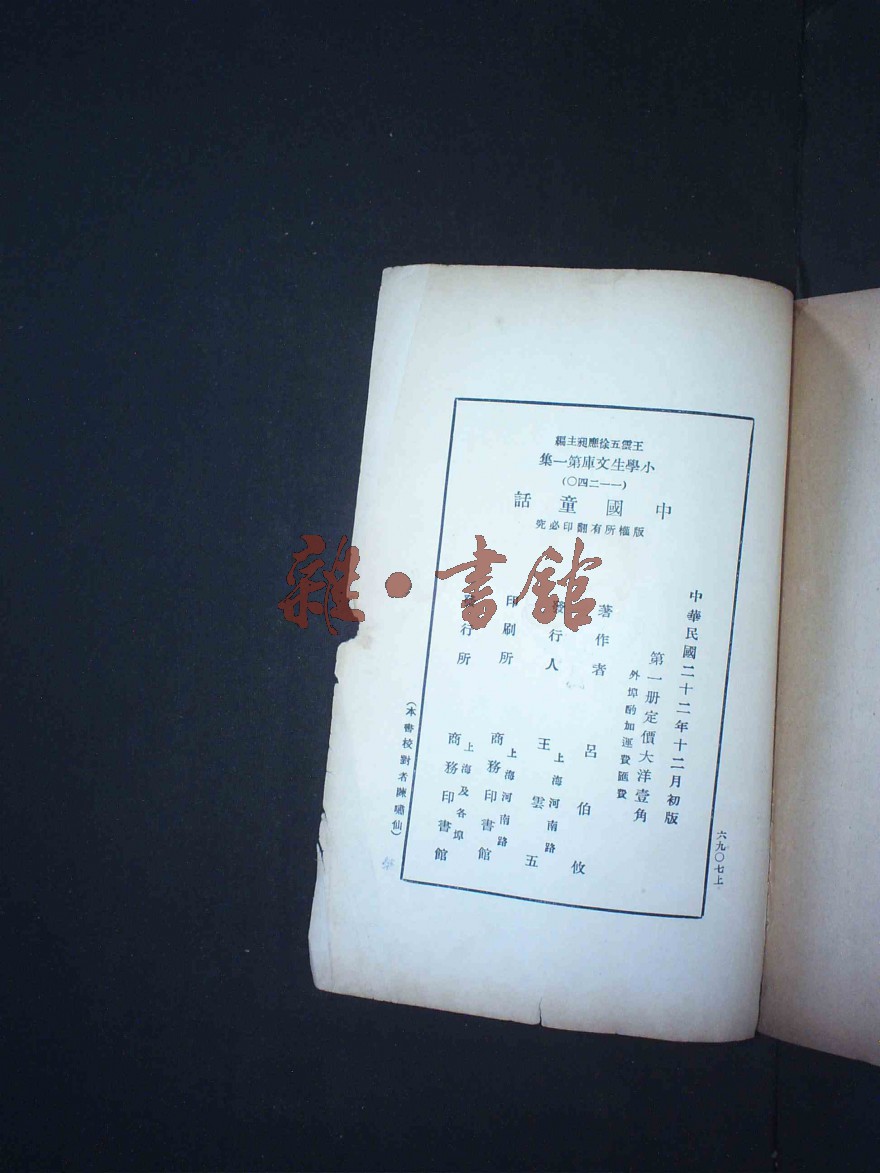 王雲五徐應昶主編
小學生文庫第一集
(一—二四〇)
中國童話
版權所有翻印必究
中華民國二十二年十二月初版
第一册定價大洋壹角
外埠酌加運費匯費
著作者 呂伯攸
發行人 王雲五
上海河南路
印刷所 商務印書館
上海河南路
發行所 商務印書館
上海及各埠
(本書校對者陳嘯仙)
六九〇七上
雜·書館